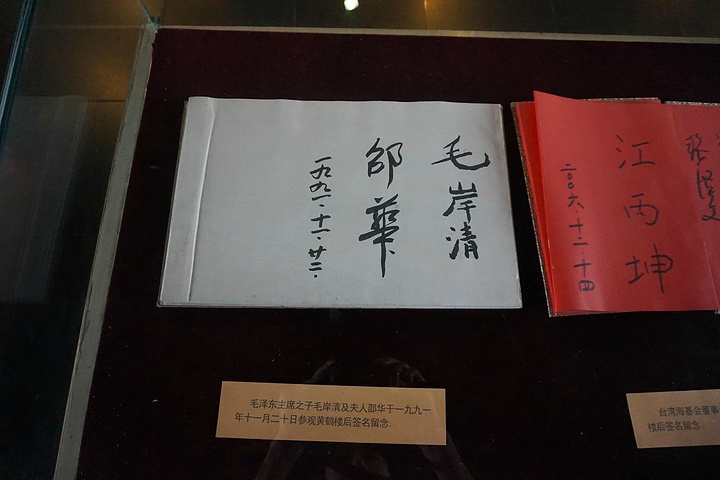 毛岸清
邵華
一九九一·十一·廿二·
江丙坤
二〇〇六·十二·十四
毛泽东主席之子毛岸清及夫人邵华于一九九一
年十一月二十日参观黄鹤楼后签名留念.
台湾海基会董事
楼后签名留念.